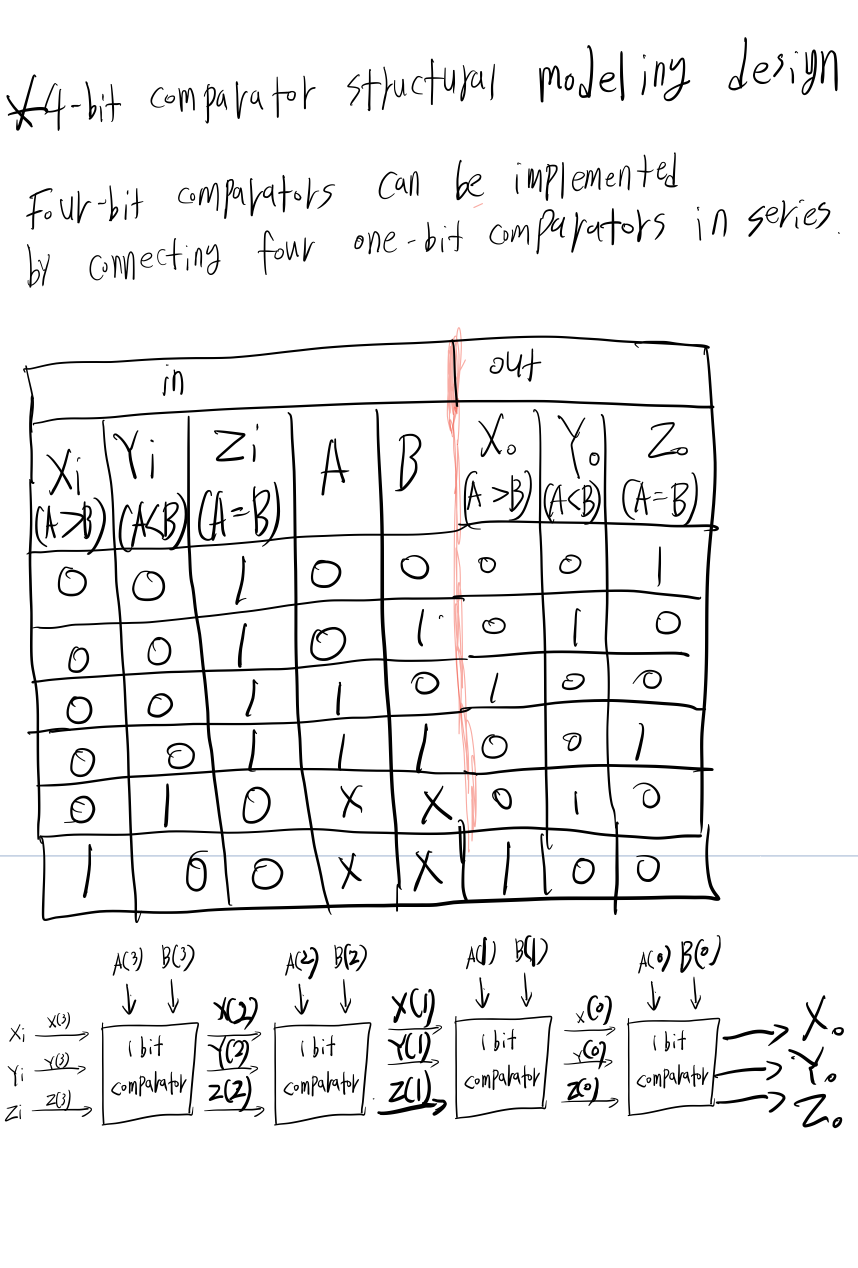 *4-bit comparator structural modeling design
Four-bit comparators can be implemented
by connecting four one-bit comparators in series.
in out
Xi Yi Zi A B Xo Yo Zo
(A>B) (A<B) (A=B) (A>B) (A<B) (A=B)
0 0 1 0 0 0 0 1
0 0 1 0 1 0 1 0
0 0 1 1 0 1 0 0
0 0 1 1 1 0 0 1
0 1 0 X X 0 1 0
1 0 0 X X 1 0 0
A(3) B(3) A(2) B(2) A(1) B(1) A(0) B(0)
Xi X(3) X(2) X(1) X(0) Xo
1 bit 1 bit 1 bit 1 bit
Yi Y(3) Y(2) Y(1) Y(0) Yo
comparator comparator comparator comparator
Zi Z(3) Z(2) Z(1) Z(0) Zo